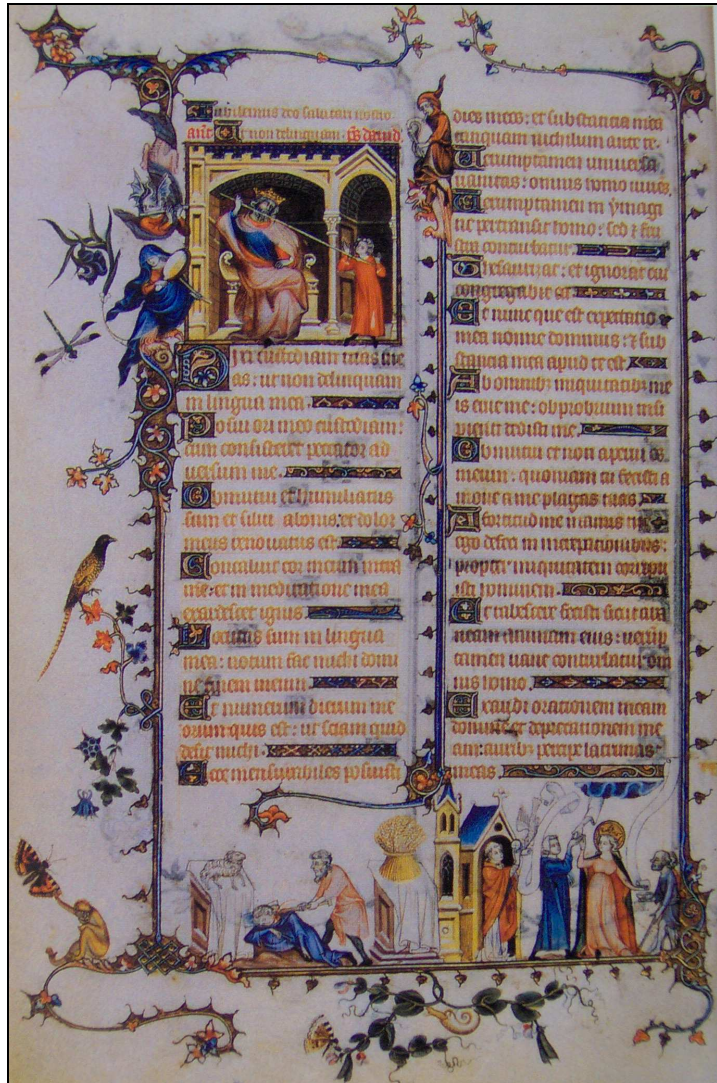 Iubilemus deo salutari nostro.
Ut non delinquam. ps dauid
Dixi custodiam uias me
as: ut non delinquam
in lingua mea.
Posui ori meo custodiam:
cum consisteret peccator ad
uersum me.
Obmutui et humiliatus
sum et silui a bonis: et dolor
meus renouatus est.
Concaluit cor meum intra
me: et in meditatione mea
exardescet ignis
Locutus sum in lingua
mea: notum fac michi domi
ne finem meum
Et numerum dierum me
orum quis est: ut sciam quid
desit michi.
Ecce mensurabiles posuisti
dies meos: et substancia mea
tanquam nichilum ante te.
Uerumptamen uniuersa
uanitas: omnis homo uiuens.
Uerumptamen in ymagi
ne pertransit homo: sed et frus
tra conturbatur
Thesaurizat: et ignorat cui
congregabit ea
Et nunc que est expectatio
mea nonne dominus: et sub
stancia mea apud te est
Ab omnibus iniquitatibus me
is erue me: obprobrium insi
pienti dedisti me
Obmutui et non aperui os
meum: quoniam tu fecisti a
moue a me plagas tuas
A fortitudine manus tue
ego defeci in increpationibus:
propter iniquitatem corripu
isti hominem.
Et tabescere fecisti sicut ara
neam animam eius: uerump
tamen uane conturbatur om
nis homo.
Exaudi orationem meam
domine et deprecationem me
am: auribus percipe lacrimas
meas